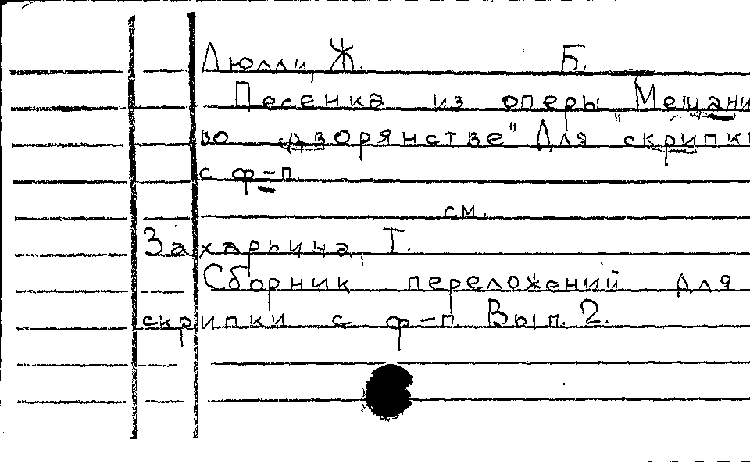 Люлли, Ж. Б.
Песенка из оперы "Мещани
во дворянстве" Для скрипки
с ф-п.
см.
Захарьина, Т.
Сборник переложений для
скрипки с ф-п. Вып. 2.